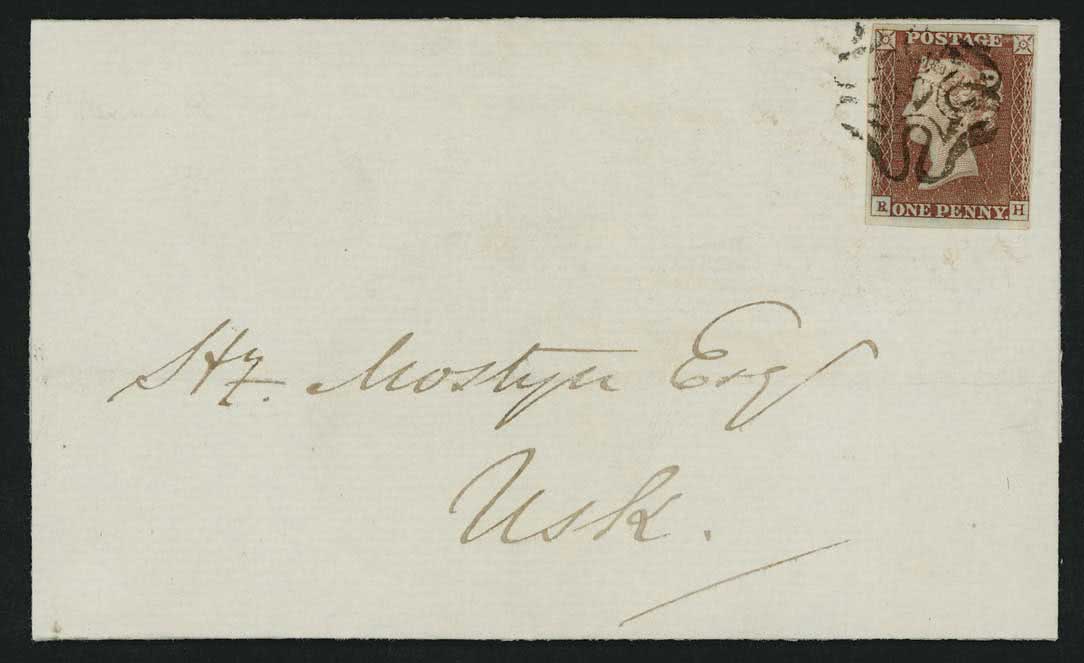 POSTAGE
R ONE PENNY. H
Hy. Mostyn Esq
Usk.